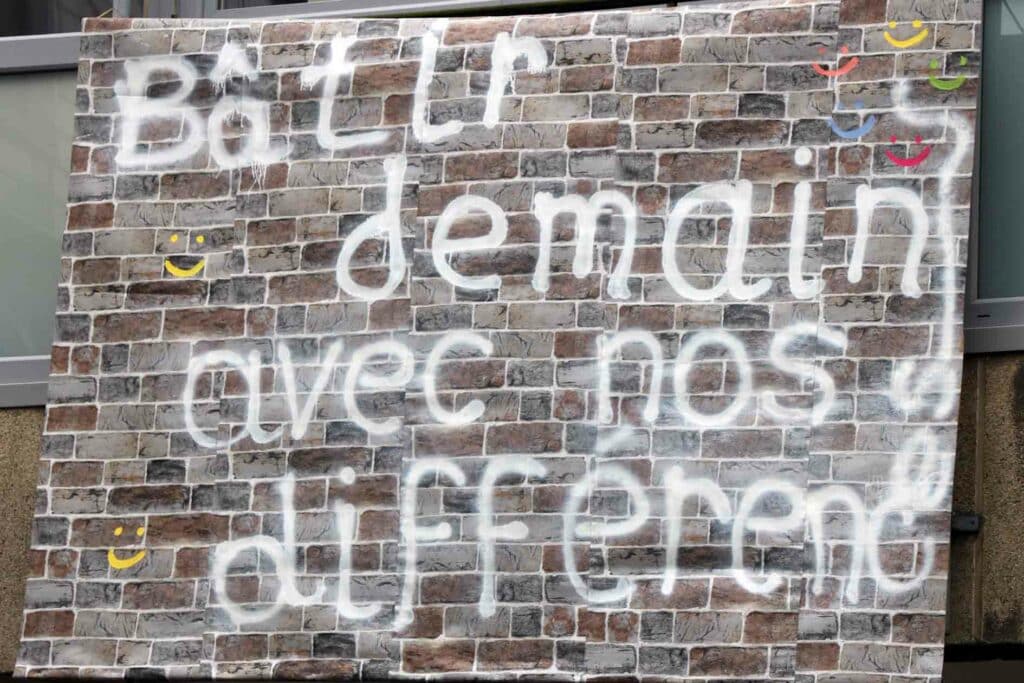 Bâtir
demain
avec nos
différences